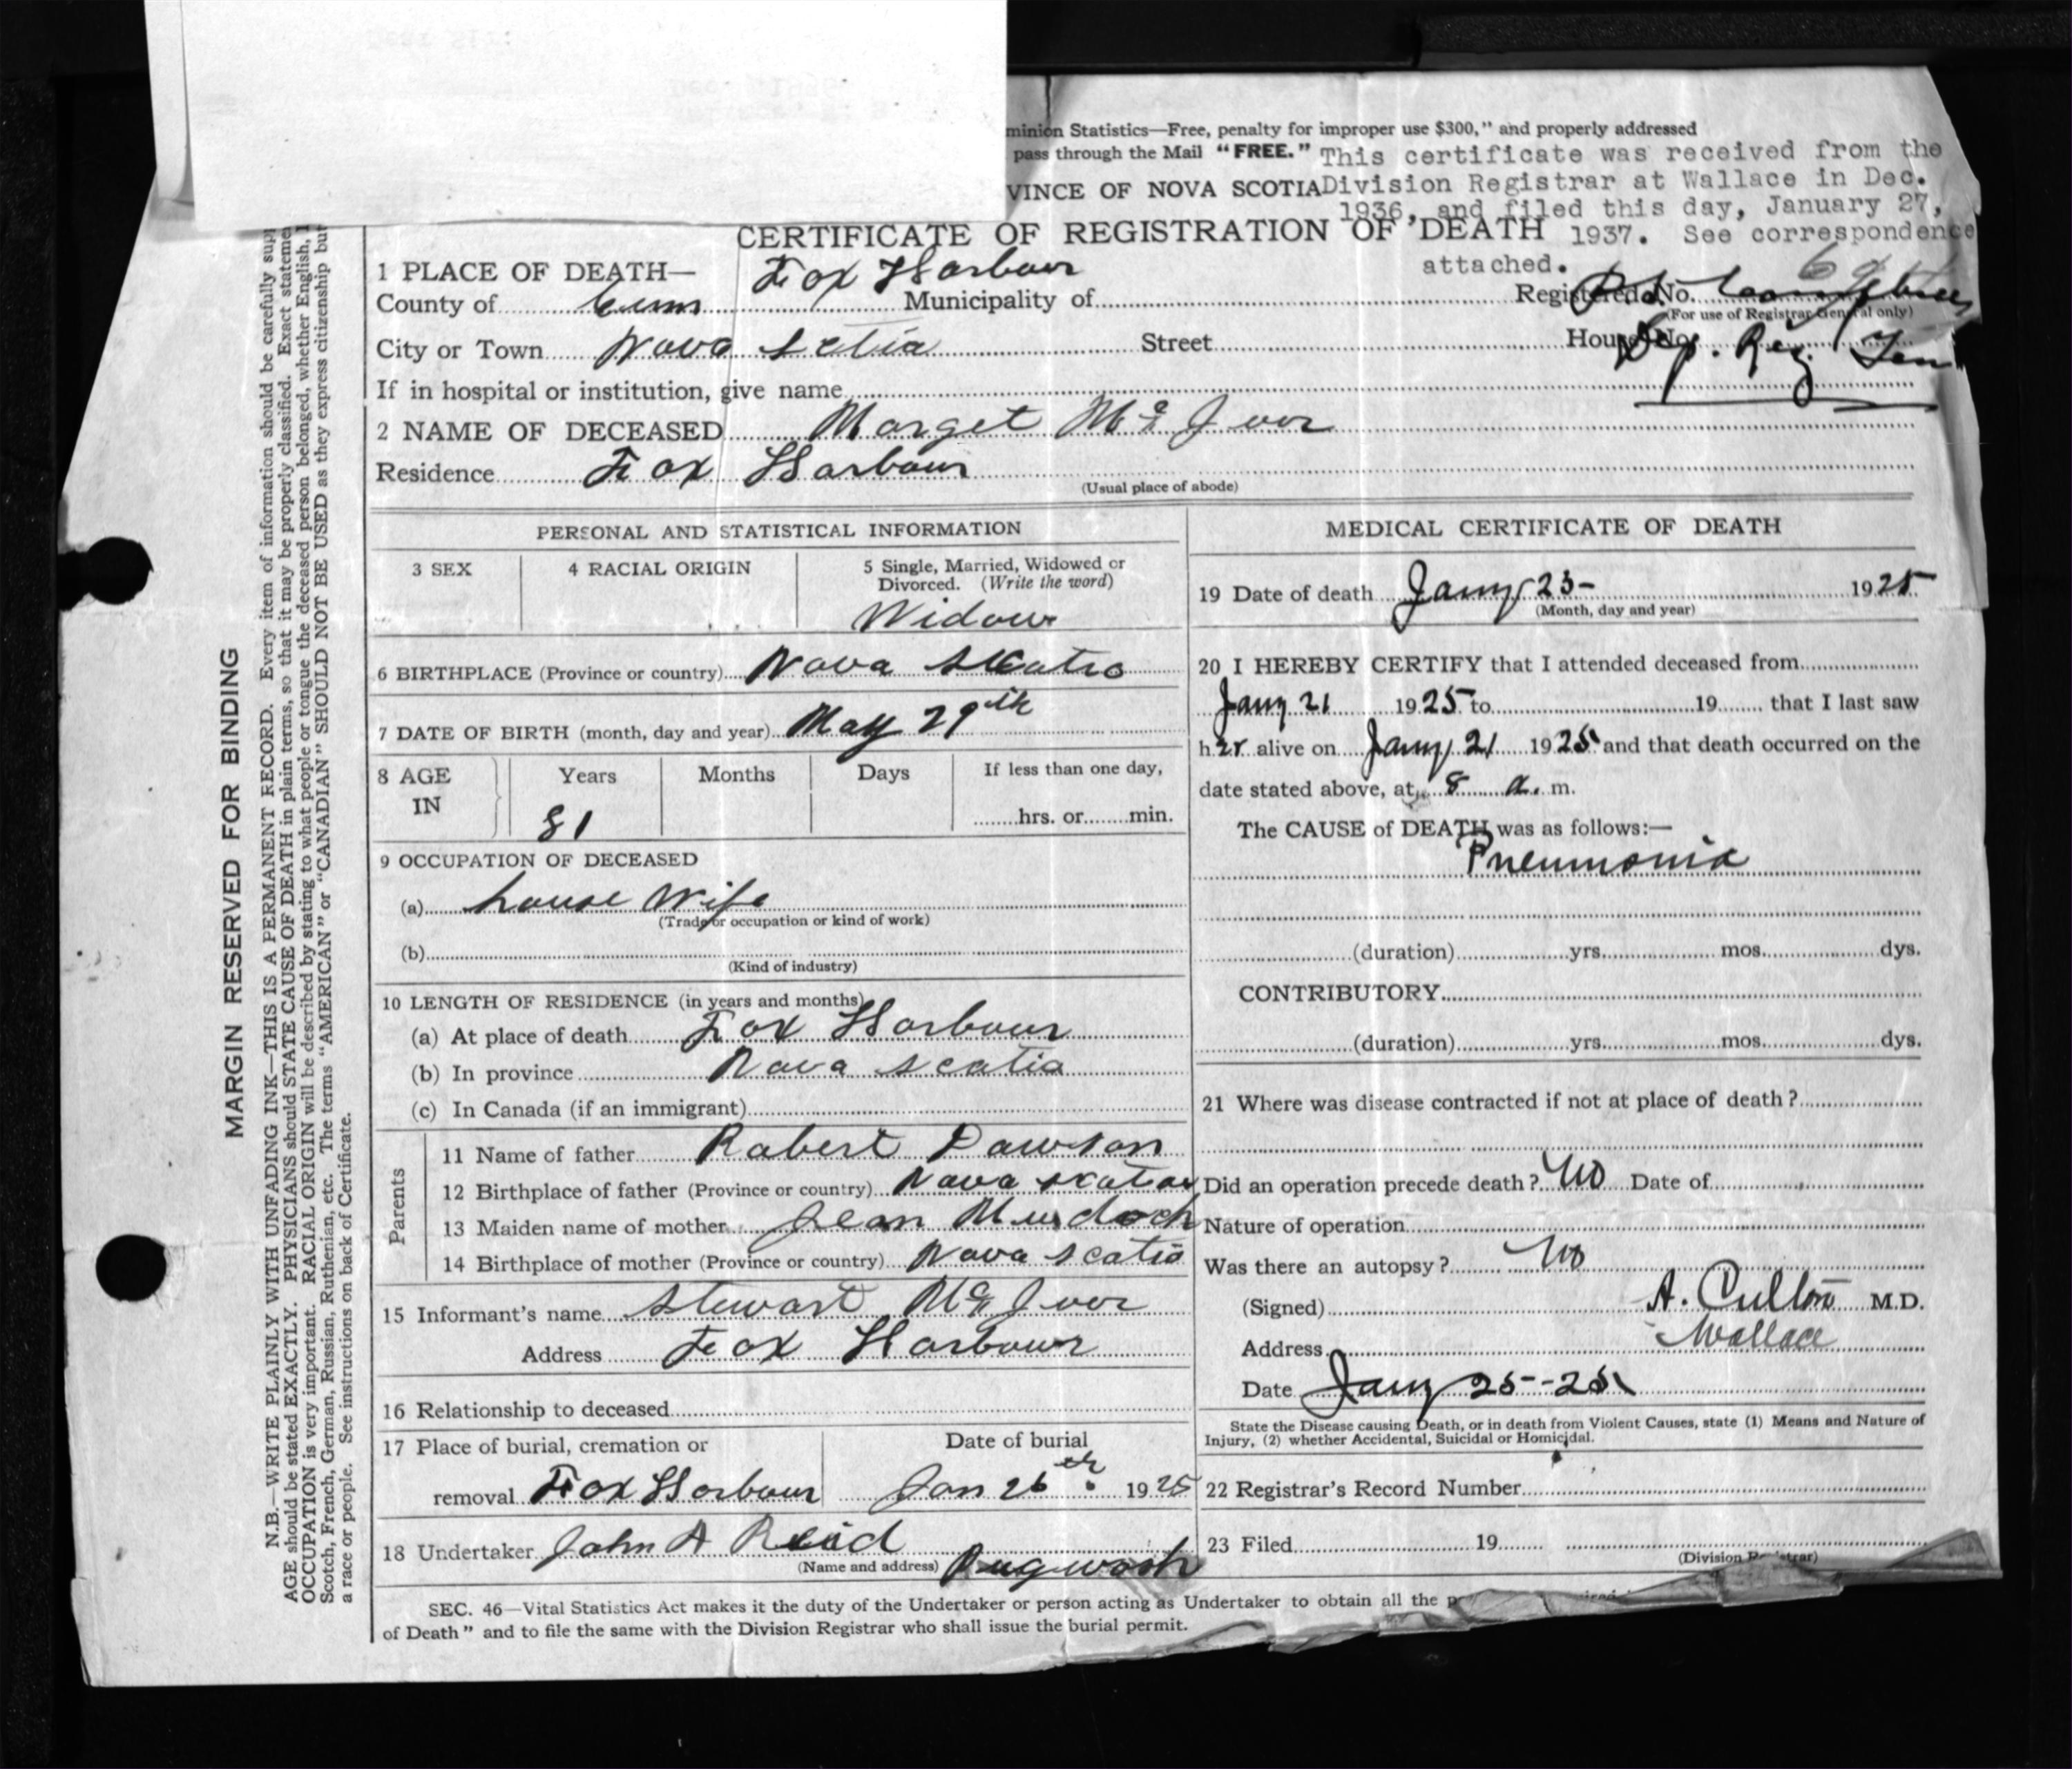 minion Statistics—Free, penalty for improper use $300," and properly addressed
pass through the Mail "FREE." This certificate was received from the
VINCE OF NOVA SCOTIA Division Registrar at Wallace in Dec.
1936, and filed this day, January 27,
CERTIFICATE OF REGISTRATION OF DEATH 1937. See correspondence
attached.
1 PLACE OF DEATH— Fox Harbour
County of Cum Municipality of Registered No.
(For use of Registrar General only)
City or Town Nova Sctia Street House No.
Dep. Reg. Gen
If in hospital or institution, give name
2 NAME OF DECEASED Marget Mc Iver
Residence Fox Harbour
(Usual place of abode)
PERSONAL AND STATISTICAL INFORMATION
3 SEX 4 RACIAL ORIGIN 5 Single, Married, Widowed or
Divorced. (Write the word)
Widow
6 BIRTHPLACE (Province or country) Nova Scatia
7 DATE OF BIRTH (month, day and year) May 29th
8 AGE Years Months Days If less than one day,
IN 81 hrs. or min.
9 OCCUPATION OF DECEASED
(a) house Wife
(Trade or occupation or kind of work)
(b)
(Kind of industry)
10 LENGTH OF RESIDENCE (in years and months)
(a) At place of death Fox Harbour
(b) In province Nova Scatia
(c) In Canada (if an immigrant)
Parents
11 Name of father Robert Dawson
12 Birthplace of father (Province or country) Nova Scatia
13 Maiden name of mother Jean Murdoch
14 Birthplace of mother (Province or country) Nova Scatia
15 Informant's name Stewart Mc Iver
Address Fox Harbour
16 Relationship to deceased
17 Place of burial, cremation or Date of burial
removal Fox Harbour Jan 26th 1925
18 Undertaker John A Reid
(Name and address) Pugwash
MEDICAL CERTIFICATE OF DEATH
19 Date of death Jany 23- 1925
(Month, day and year)
20 I HEREBY CERTIFY that I attended deceased from
Jany 21 1925 to 19 that I last saw
her alive on Jany 21 1925 and that death occurred on the
date stated above, at 8 a. m.
The CAUSE of DEATH was as follows:—
Pneumonia
(duration) yrs. mos. dys.
CONTRIBUTORY
(duration) yrs. mos. dys.
21 Where was disease contracted if not at place of death?
Did an operation precede death? No Date of
Nature of operation
Was there an autopsy? No
(Signed) A. Culton M.D.
Address Wallace
Date Jany 25--25
State the Disease causing Death, or in death from Violent Causes, state (1) Means and Nature of
Injury, (2) whether Accidental, Suicidal or Homicidal.
22 Registrar's Record Number
23 Filed 19
(Division Registrar)
SEC. 46—Vital Statistics Act makes it the duty of the Undertaker or person acting as Undertaker to obtain all the
of Death" and to file the same with the Division Registrar who shall issue the burial permit.
MARGIN RESERVED FOR BINDING
N.B.—WRITE PLAINLY WITH UNFADING INK—THIS IS A PERMANENT RECORD. Every item of information should be carefully sup
AGE should be stated EXACTLY. PHYSICIANS should STATE CAUSE OF DEATH in plain terms, so that it may be properly classified. Exact stateme
OCCUPATION is very important. RACIAL ORIGIN will be described by stating to what people or tongue the deceased person belonged, whether English, I
Scotch, French, German, Russian, Ruthenian, etc. The terms "AMERICAN" or "CANADIAN" SHOULD NOT BE USED as they express citizenship but
a race or people. See instructions on back of Certificate.